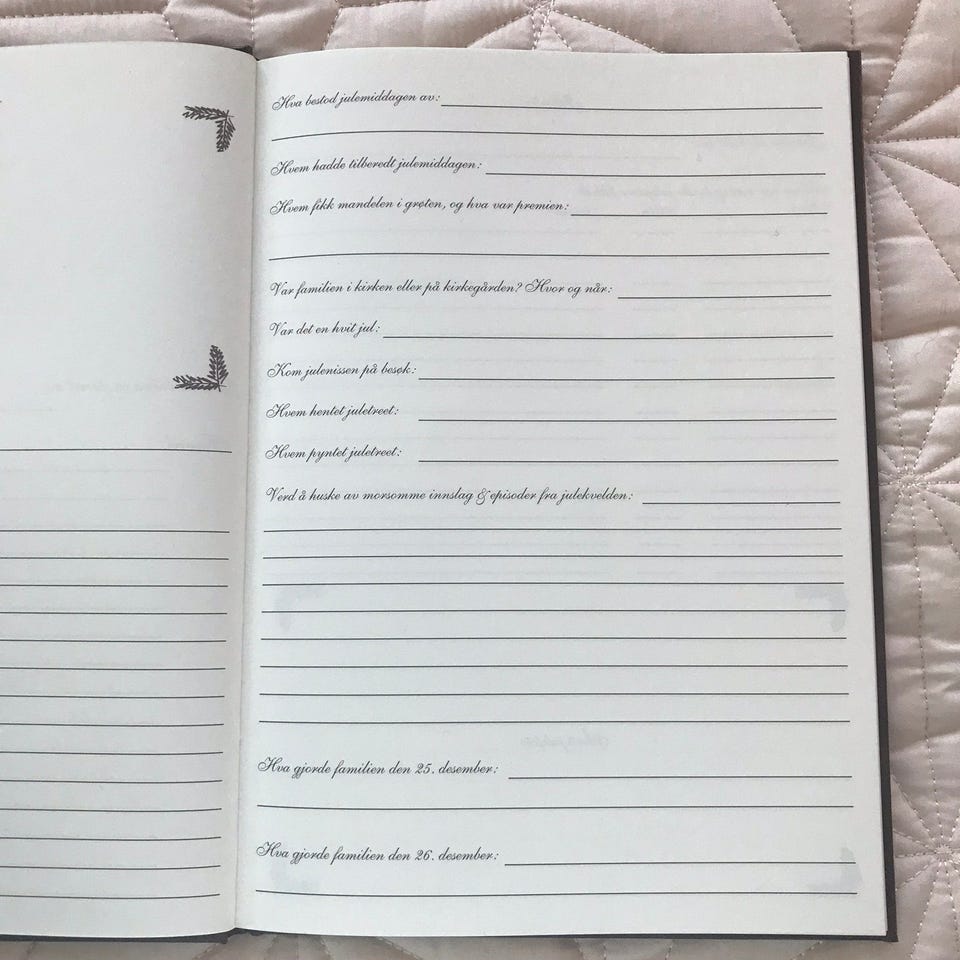 Hva bestod julemiddagen av:
Hvem hadde tilberedt julemiddagen:
Hvem fikk mandelen i grøten, og hva var premien:
Var familien i kirken eller på kirkegården? Hvor og når:
Var det en hvit jul:
Kom julenissen på besøk:
Hvem hentet juletreet:
Hvem pyntet juletreet:
Verd å huske av morsomme innslag & episoder fra julekvelden:
Hva gjorde familien den 25. desember:
Hva gjorde familien den 26. desember: